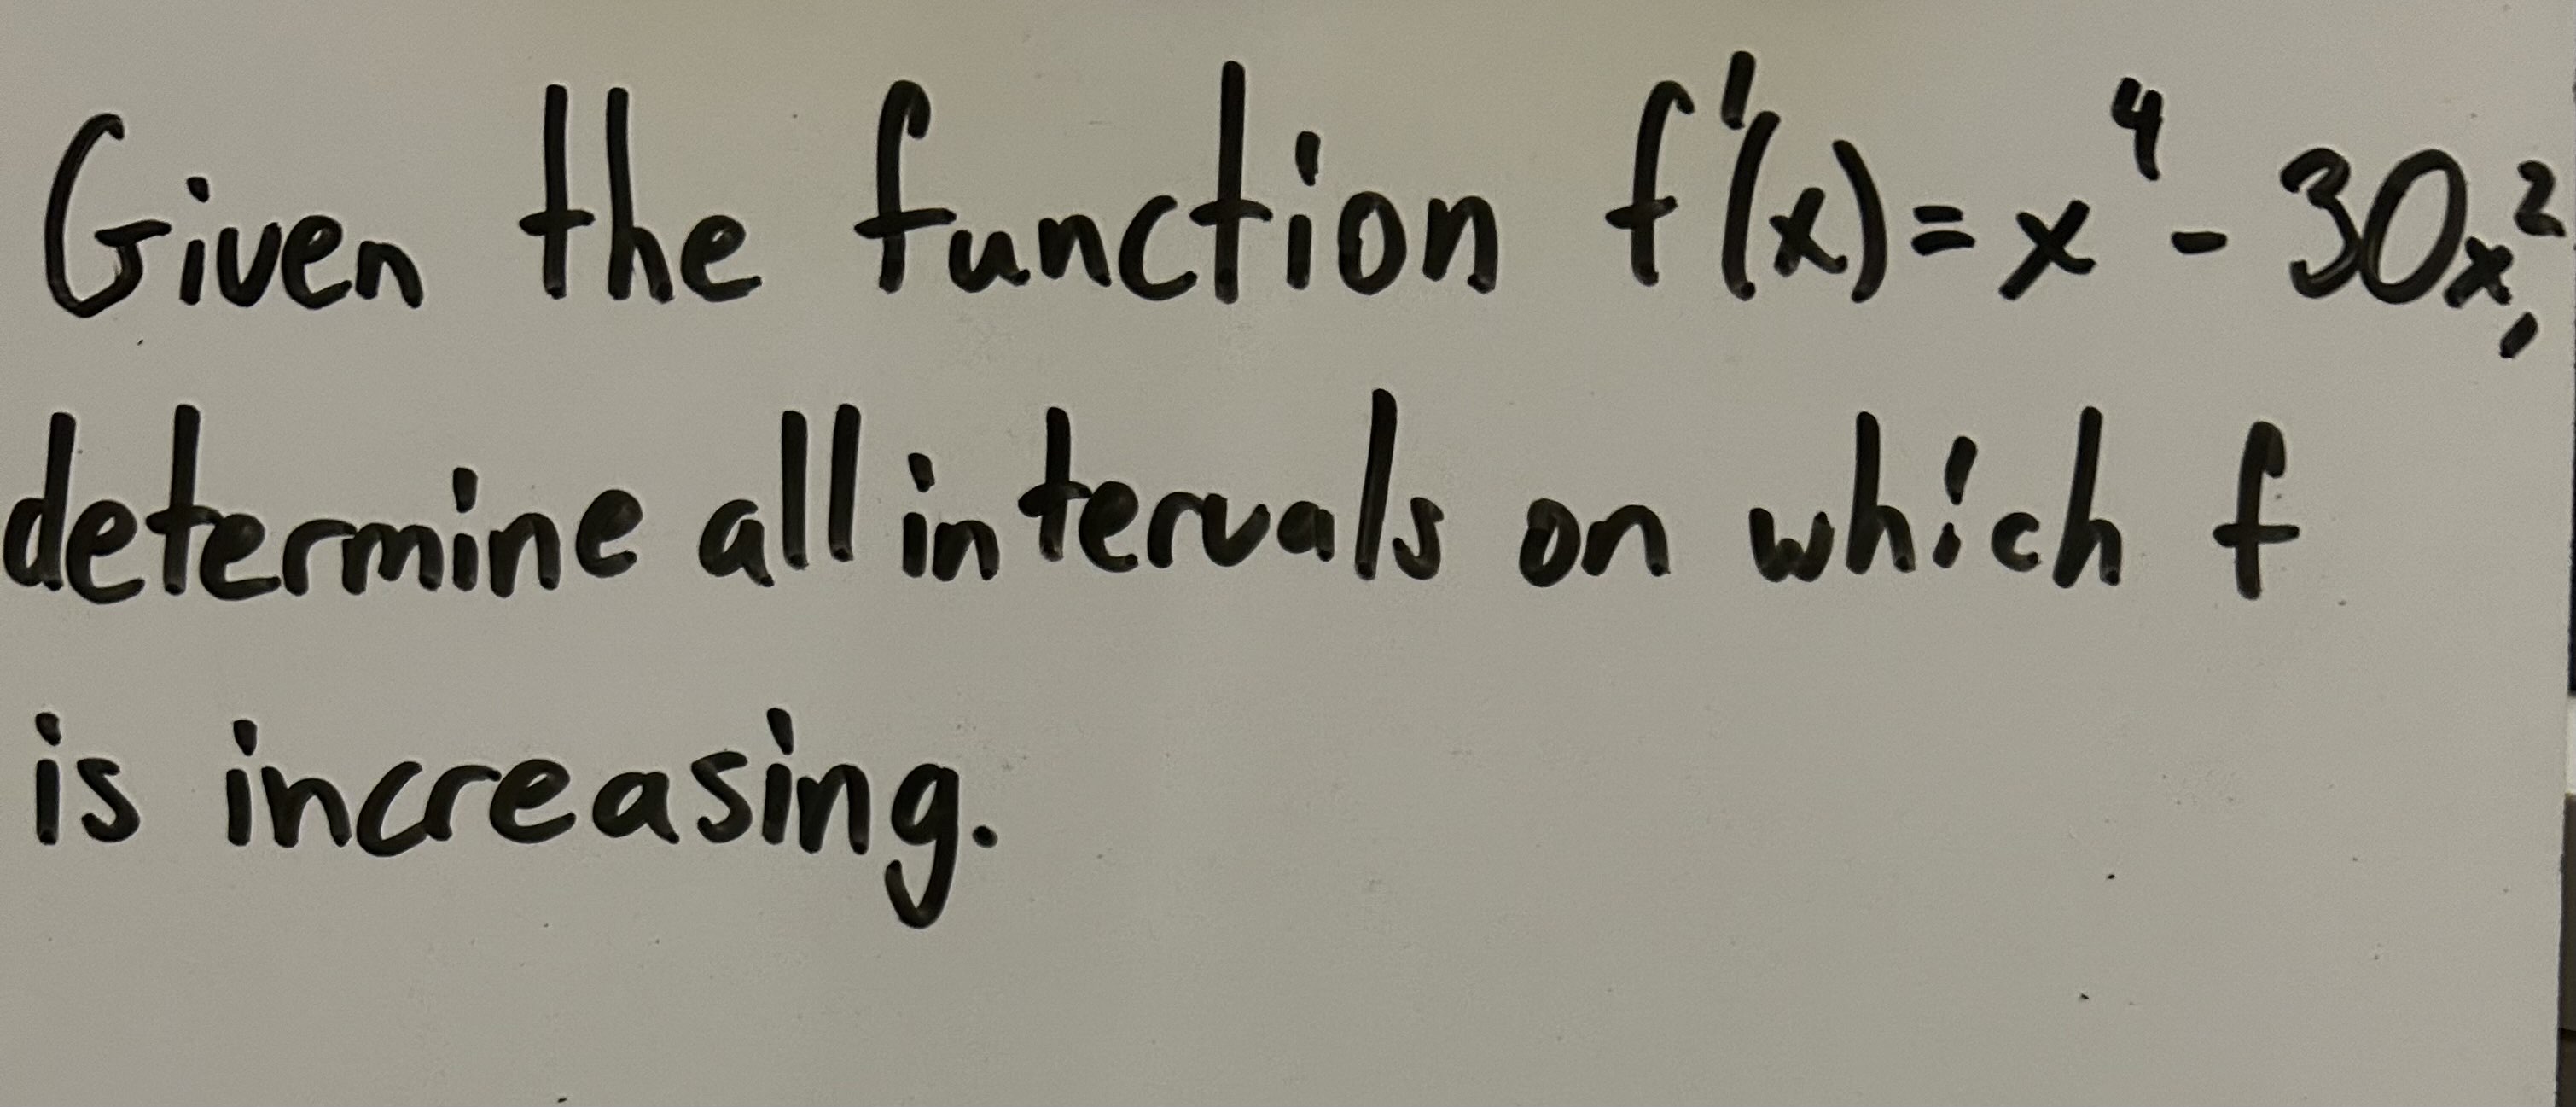 Given the function f'(x) = x⁴ - 30x²,
determine all intervals on which f
is increasing.